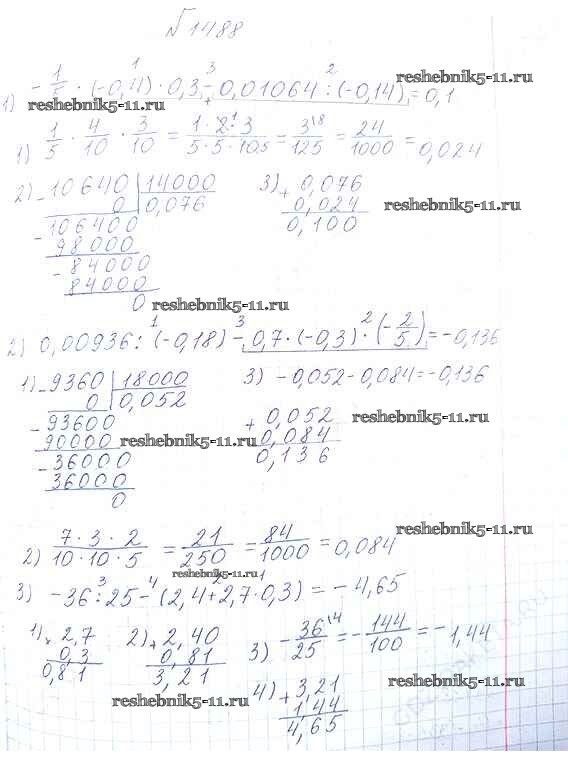 √1488
1) -1/5 · (-0,4) · 0,3 - 0,01064 : (-0,14) = 0,1
reshebnik5-11.ru reshebnik5-11.ru
1) 1/5 · 4/10 · 3/10 = 1·2·3/5·5·10 5 = 3\8/125 = 24/1000 = 0,024
2) - 10640 | 14000 3) + 0,076
0 0,076 0,024 reshebnik5-11.ru
- 106400 0,100
98000
- 84000
84000
0 reshebnik5-11.ru
2) 0,00936 : (-0,18) - 0,7 · (-0,3) · (-2/5) = -0,136
1) - 9360 | 18000 3) -0,052 - 0,084 = -0,136
0 0,052
- 93600 + 0,052 reshebnik5-11.ru
90000 reshebnik5-11.ru 0,084
- 36000 0,136
36000
0
reshebnik5-11.ru
2) 7·3·2/10·10·5 = 21/250 = 84/1000 = 0,084
reshebnik5-11.ru
3) -36 : 25 - (2,4 + 2,7 · 0,3) = -4,65
1) × 2,7 2) + 2,40 3) -36\4/25 = -144/100 = -1,44
0,3 0,81
0,81 3,21
4) + 3,21
reshebnik5-11.ru 1,44 reshebnik5-11.ru
4,65
reshebnik5-11.ru